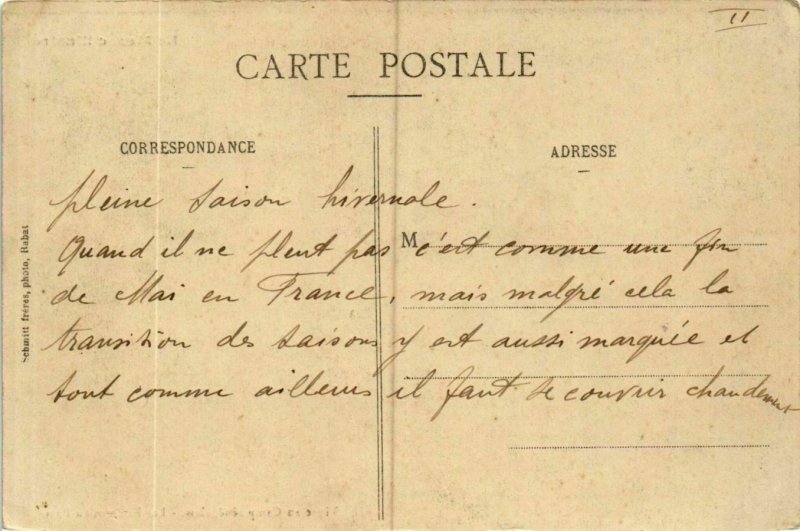 11
CARTE POSTALE
CORRESPONDANCE
ADRESSE
pleine saison hivernale.
M
Quand il ne pleut pas c'est comme une fin
de Mai en France, mais malgré cela la
transition des saisons y est aussi marquée et
tout comme ailleurs il faut se couvrir chaudement
Schmitt frères, photo, Rabat